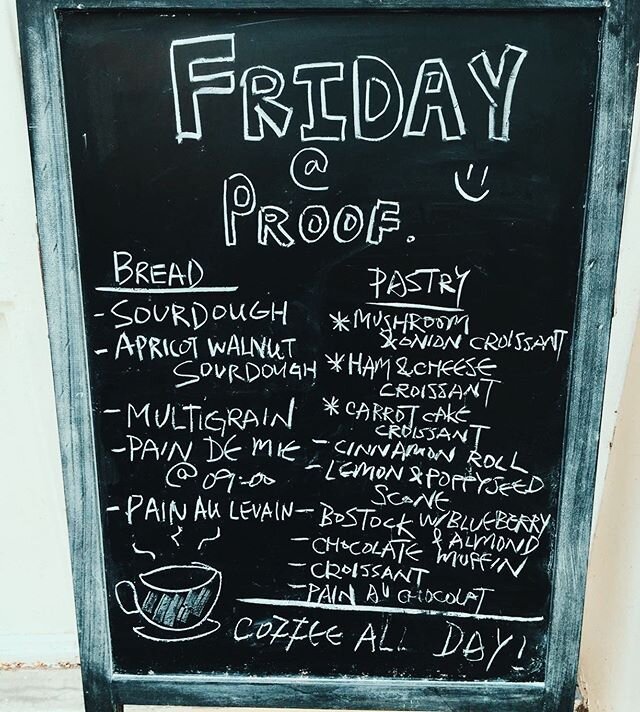 FRIDAY
@
PROOF.
BREAD
- SOURDOUGH
- APRICOT WALNUT
SOURDOUGH
- MULTIGRAIN
- PAIN DE MIE
@ 09:00
- PAIN AU LEVAIN
PASTRY
* MUSHROOM
& ONION CROISSANT
* HAM & CHEESE
CROISSANT
* CARROT CAKE
CROISSANT
- CINNAMON ROLL
- LEMON & POPPYSEED
SCONE
- BOSTOCK W/ BLUEBERRY
& ALMOND
- CHOCOLATE MUFFIN
- CROISSANT
- PAIN AU CHOCOLAT
COFFEE ALL DAY!